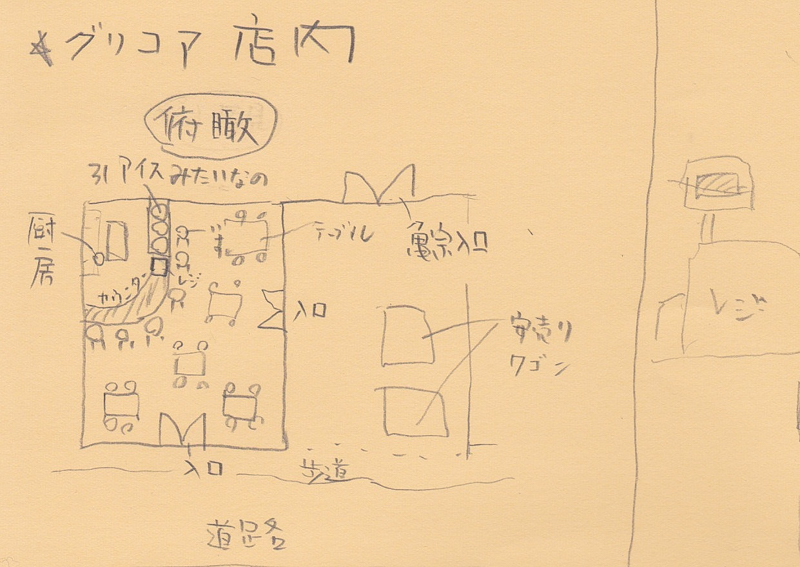 *グリコア 店内
俯瞰
31アイスみたいなの
厨房
カウンター
レジ
いす
テーブル
亀宗入口
入口
安売り
ワゴン
入口
歩道
道路
レジ